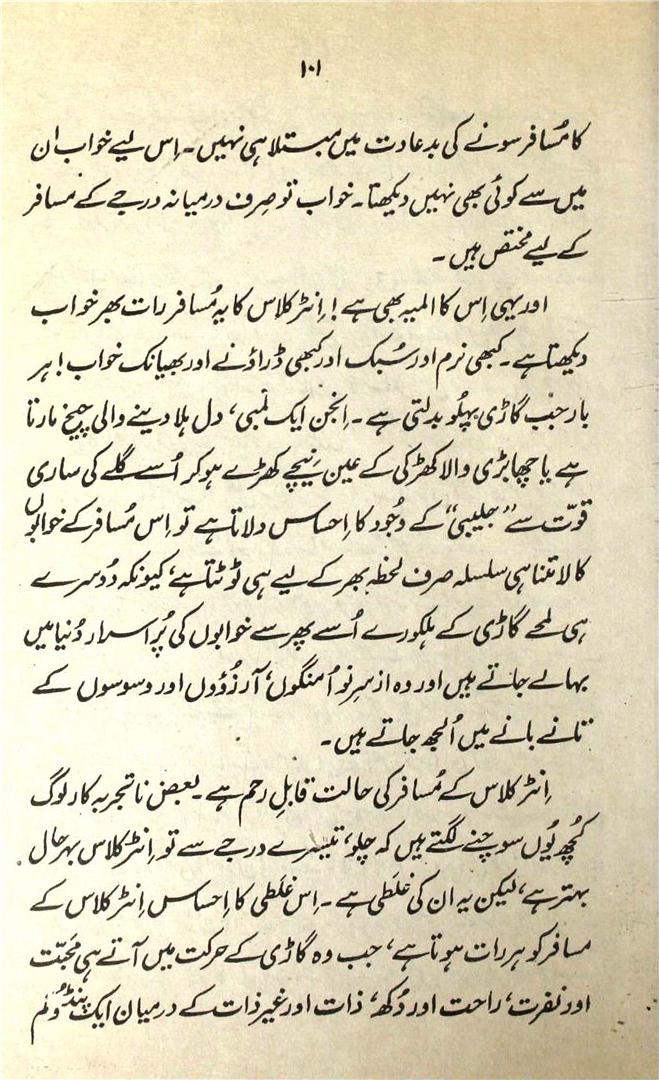 ۱۰۱
کا مُسافر سونے کی بدعادت میں مبتلا ہی نہیں۔ اِس لیے خواب ان
میں سے کوئی بھی نہیں دیکھتا۔ خواب تو صِرف درمیانہ درجے کے مسافر
کے لیے مختص ہیں۔
اور یہی اِس کا المیہ بھی ہے! اِنٹر کلاس کا یہ مُسافر رات بھر خواب
دیکھتا ہے۔ کبھی نرم اور سُبک اور کبھی ڈراؤنے اور بھیانک خواب! ہر
بار جب گاڑی پہلُو بدلتی ہے۔ اِنجن ایک لمبی، دل ہلا دینے والی چیخ مارتا
ہے یا چھابڑی والا کھڑکی کے عین نیچے کھڑے ہو کر اُسے گلے کی ساری
قوّت سے ”جلیبی“ کے وجُود کا اِحساس دلاتا ہے تو اِس مُسافر کے خوابوں
کا لامتناہی سلسلہ صرف لحظہ بھر کے لیے ہی ٹوٹتا ہے، کیونکہ دُوسرے
ہی لمحے گاڑی کے ہلکورے اُسے پھر سے خوابوں کی پُراسرار دُنیا میں
بہا لے جاتے ہیں اور وہ از سرِ نو اُمنگوں، آرزُوؤں اور وسوسوں کے
تانے بانے میں اُلجھ جاتے ہیں۔
اِنٹر کلاس کے مُسافر کی حالت قابلِ رحم ہے۔ بعض ناتجربہ کار لوگ
کُچھ یُوں سوچنے لگتے ہیں کہ چلو، تیسرے درجے سے تو اِنٹر کلاس بہرحال
بہتر ہے، لیکن یہ ان کی غلَطی ہے۔ اِس غلَطی کا اِحساس اِنٹر کلاس کے
مسافر کو ہر رات ہوتا ہے، جب وہ گاڑی کے حرکت میں آتے ہی محبّت
اور نفرت، راحت اور دُکھ، ذات اور غیر ذات کے درمیان ایک پنڈولم